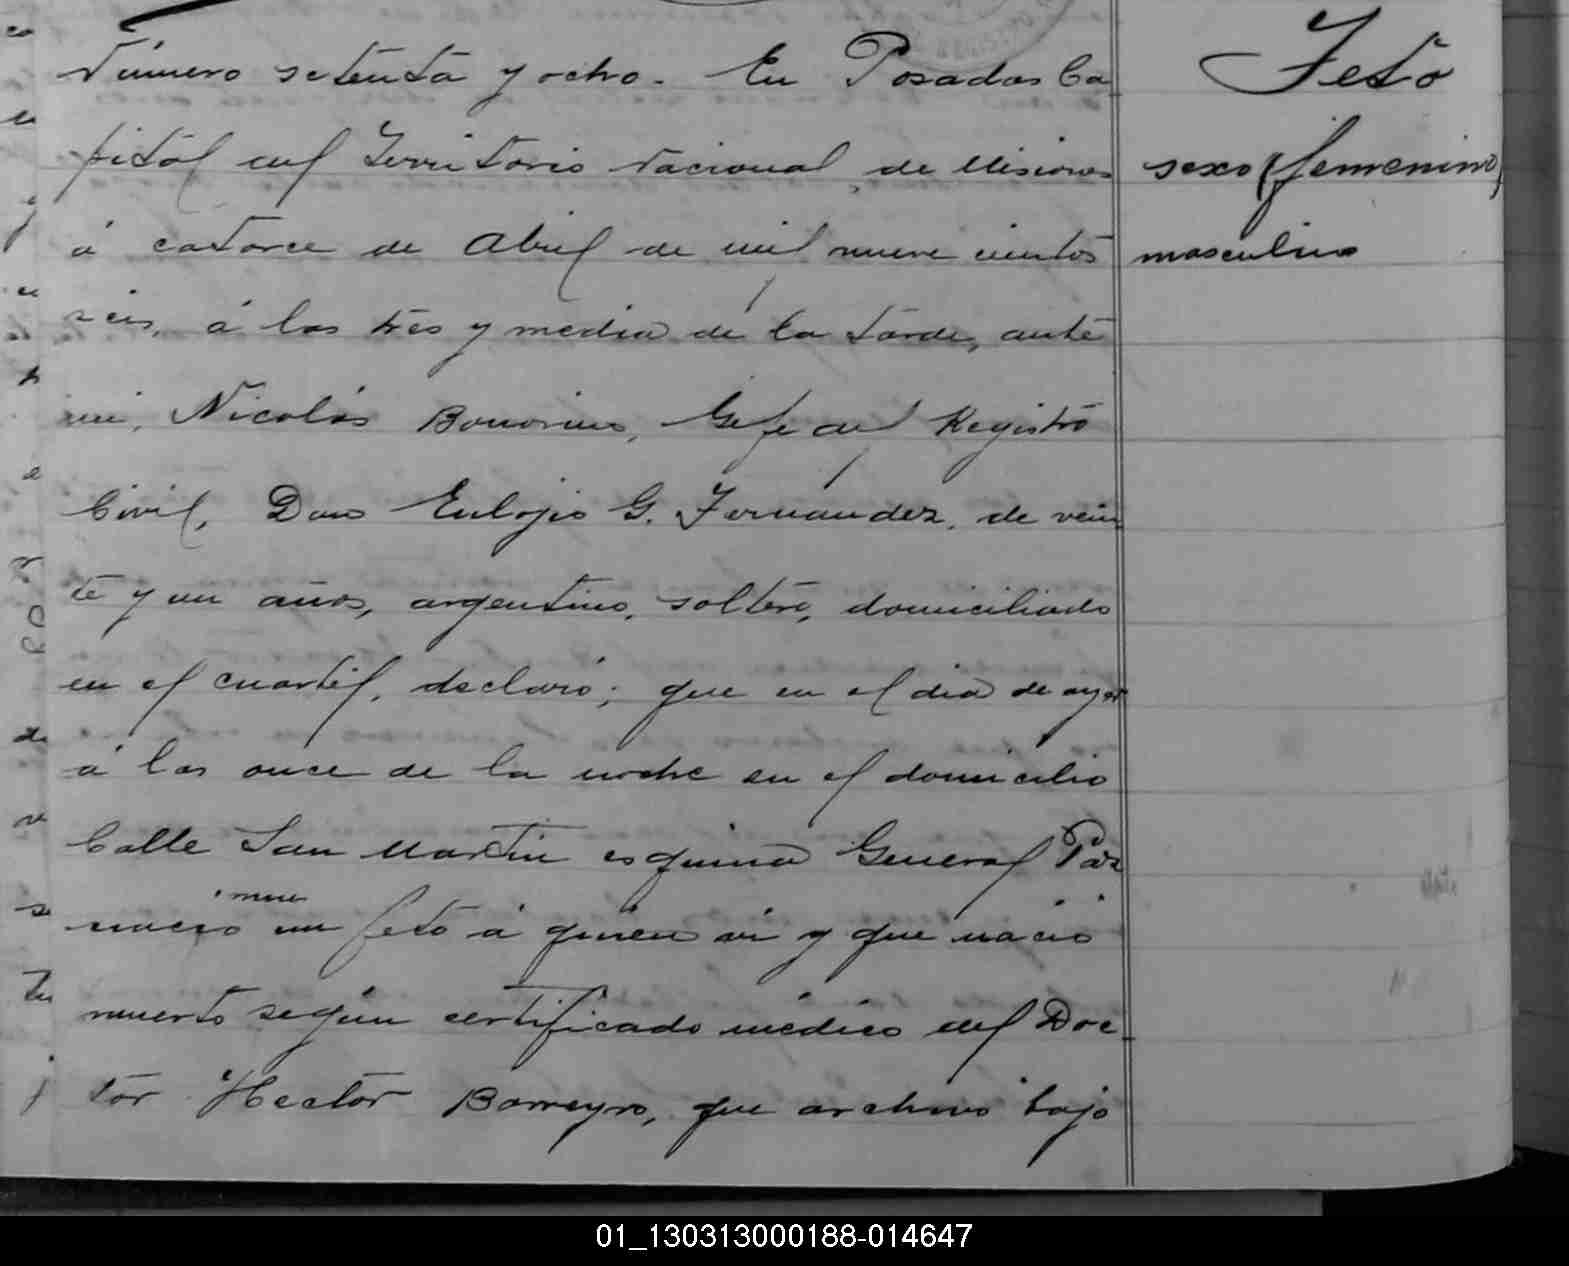 Número setenta y ocho. En Posadas Ca
pital del Territorio Nacional de Misiones
á catorce de Abril de mil nueve cientos
seis, á las tres y media de la tarde, ante
mi, Nicolás Bonorino, Gefe del Registro
Civil, Don Eulojio G. Fernández, de vein
te y un años, argentino, soltero, domiciliado
en el cuartel, declaró; que en el dia de ayer
á las once de la noche en el domicilio
Calle San Martin esquina General Paz
nació un feto á quien vi y que nació
muerto según certificado médico del Doc
tor Hector Barreyro, que archivo bajo
Feto
sexo (femenino)
masculino
01_130313000188-014647